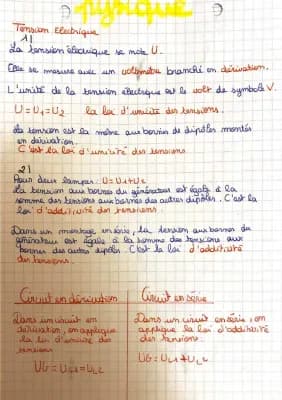 physique
Tension Electrique
1)
La tension électrique se note U.
Elle se mesure avec un voltmètre branché en dérivation.
L'unité de la tension électrique est le volt de symbole V.
U = U1 = U2 la loi d'unicité des tensions.
La tension est la même aux bornes de dipôles montés
en dérivation.
C'est la loi d'unicité des tensions
2)
Pour deux lampes: U = U1 + U2
La tension aux bornes du générateur est égale à la
somme des tensions aux bornes des autres dipôles. C'est la
loi d'additivité des tensions
Dans un montage en série, la tension aux bornes du
générateur est égale à la somme des tensions aux
bornes des autres dipôles. C'est la loi d'additivité
des tensions.
Circuit en dérivation
Circuit en série
Dans un circuit en
dérivation, on applique
la loi d'unicité des
tensions
UG = UL1 = UL2
Dans un circuit en série, on
applique la loi d'additivité
des tensions:
UG = UL1 + UL2